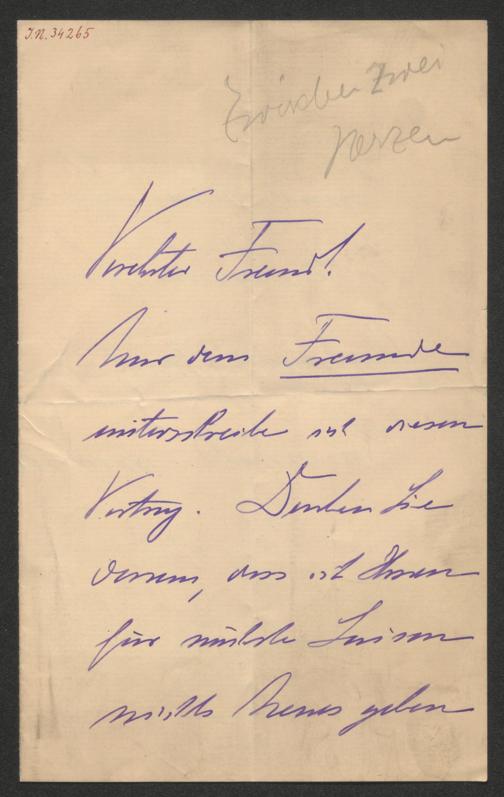 J.N. 34265
Zwischen zwei
Herzen
Verehrter Freund!
Nur dem Freunde
unterschreibe ich diesen
Vertrag. Denken Sie
daran, dass ich Ihnen
für nächste Saison
nichts Neues geben